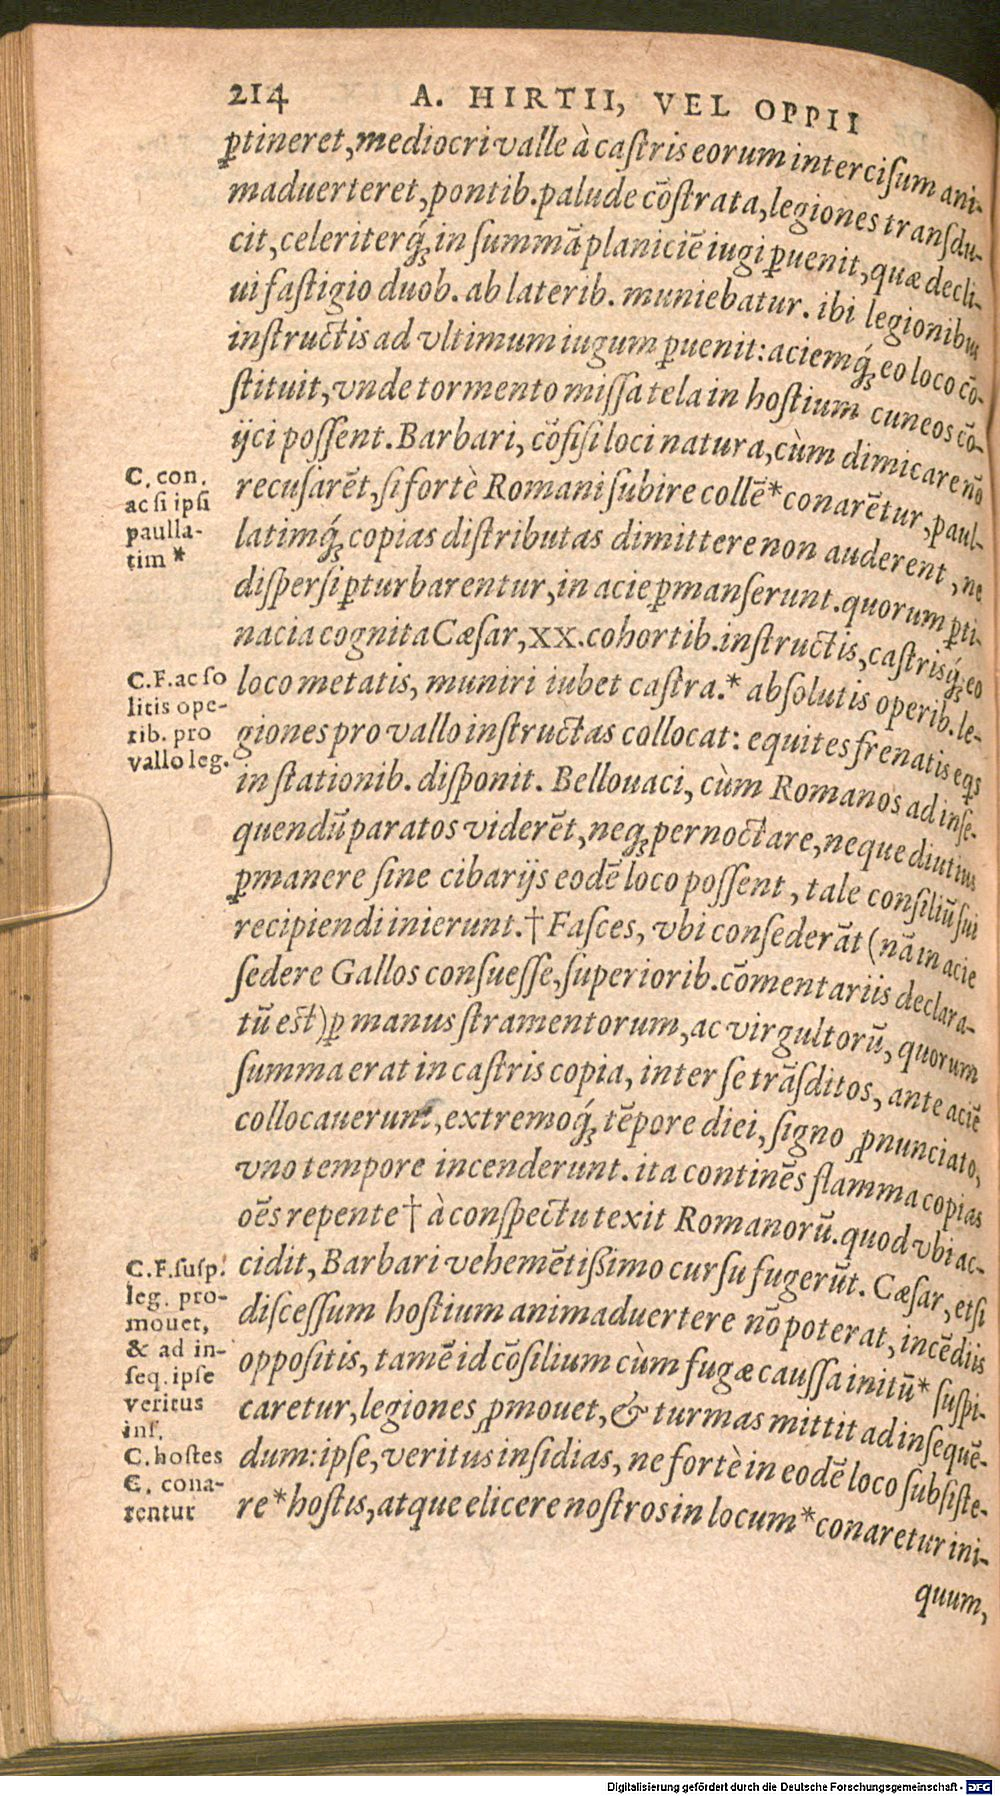 214 A. HIRTII, VEL OPPII
ꝑtineret, mediocri valle à caſtris eorum interciſum ani-
maduerteret, pontib. palude cõſtrata, legiones tranſdu-
cit, celeriterq́ꝫ in ſummã planiciẽ iugi ꝑuenit, quæ decli-
ui faſtigio duob. ab laterib. muniebatur. ibi legionibus
inſtructis ad vltimum iugum ꝑuenit: aciemq́ꝫ eo loco cõ-
ſtituit, vnde tormento miſſa tela in hoſtium cuneos cõ-
ijci poſſent. Barbari, cõfiſi loci natura, cùm dimicare nõ
recuſarẽt, ſi fortè Romani ſubire collẽ* conarẽtur, paul-
latimq́ꝫ copias diſtributas dimittere non auderent, ne
diſperſi ꝑturbarentur, in acie ꝑmanſerunt. quorum ꝑti-
nacia cognita Cæſar, XX. cohortib. inſtructis, caſtrisq́ꝫ eo
loco metatis, muniri iubet caſtra.* abſolutis operib. le-
giones pro vallo inſtructas collocat: equites frenatis eqs
in ſtationib. diſponit. Bellouaci, cùm Romanos ad inſe-
quendũ paratos viderẽt, neqꝫ pernoctare, neque diutius
ꝑmanere ſine cibarijs eodẽ loco poſſent, tale conſiliũ ſui
recipiendi inierunt. † Faſces, vbi conſederãt (nã in acie
ſedere Gallos conſueſſe, ſuperiorib. cõmentariis declara-
tũ eſt) ꝑ manus ſtramentorum, ac virgultorũ, quorum
ſumma erat in caſtris copia, inter ſe trãſditos, ante aciẽ
collocauerunt, extremoq́ꝫ tẽpore diei, ſigno ꝓnunciato,
vno tempore incenderunt. ita continẽs flamma copias
oẽs repente † à conſpectu texit Romanorũ. quod vbi ac-
cidit, Barbari vehemẽtiſſimo curſu fugerũt. Cæſar, etſi
diſceſſum hoſtium animaduertere nõ poterat, incẽdiis
oppoſitis, tamẽ id cõſilium cùm fugæ cauſſa initũ* ſuſpi-
caretur, legiones ꝓmouet, & turmas mittit ad inſequẽ-
dum: ipſe, veritus inſidias, ne fortè in eodẽ loco ſubſiſte-
re* hoſtis, atque elicere noſtros in locum* conaretur ini-
quum,
C. con.
ac ſi ipſi
paulla-
tim *
C.F. ac ſo
litis ope-
rib. pro
vallo leg.
C.F. ſuſp.
leg. pro-
mouet,
& ad in-
ſeq. ipſe
veritus
inſ.
C. hoſtes
C. cona-
rentur
Digitalisierung gefördert durch die Deutsche Forschungsgemeinschaft - DFG